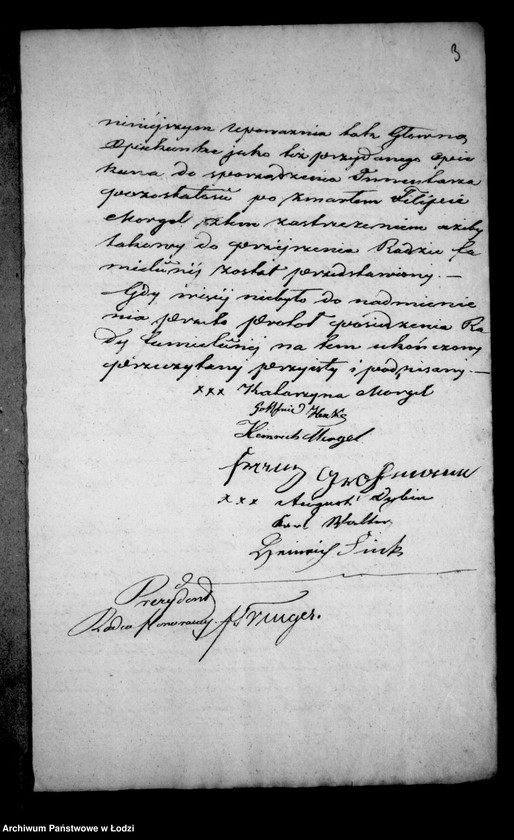 3
niniejszym upoważnia tak Główną
Opiekunkę jako też przydanego opie
kuna do sporządzenia Inwentarza
pozostałości po zmarłem Filipie
Morgel, z tem zastrzeżeniem ażeby
takowy do przejrzenia Radzie fa
milijnij został przedstawiony. —
Gdy więcij niebyło do nadmienie
nia przeto protok posiedzenia Ra
dy familijnij na tem ukończony
przeczytany przyięty i podpisany. —
xxx Katarzyna Morgel
Gottfried
Heinrich Morgel
Franz Grossmann
xxx August
Karl Walter
Heinrich
Prezydent
Radca Honorowy
Archiwum Państwowe w Łodzi